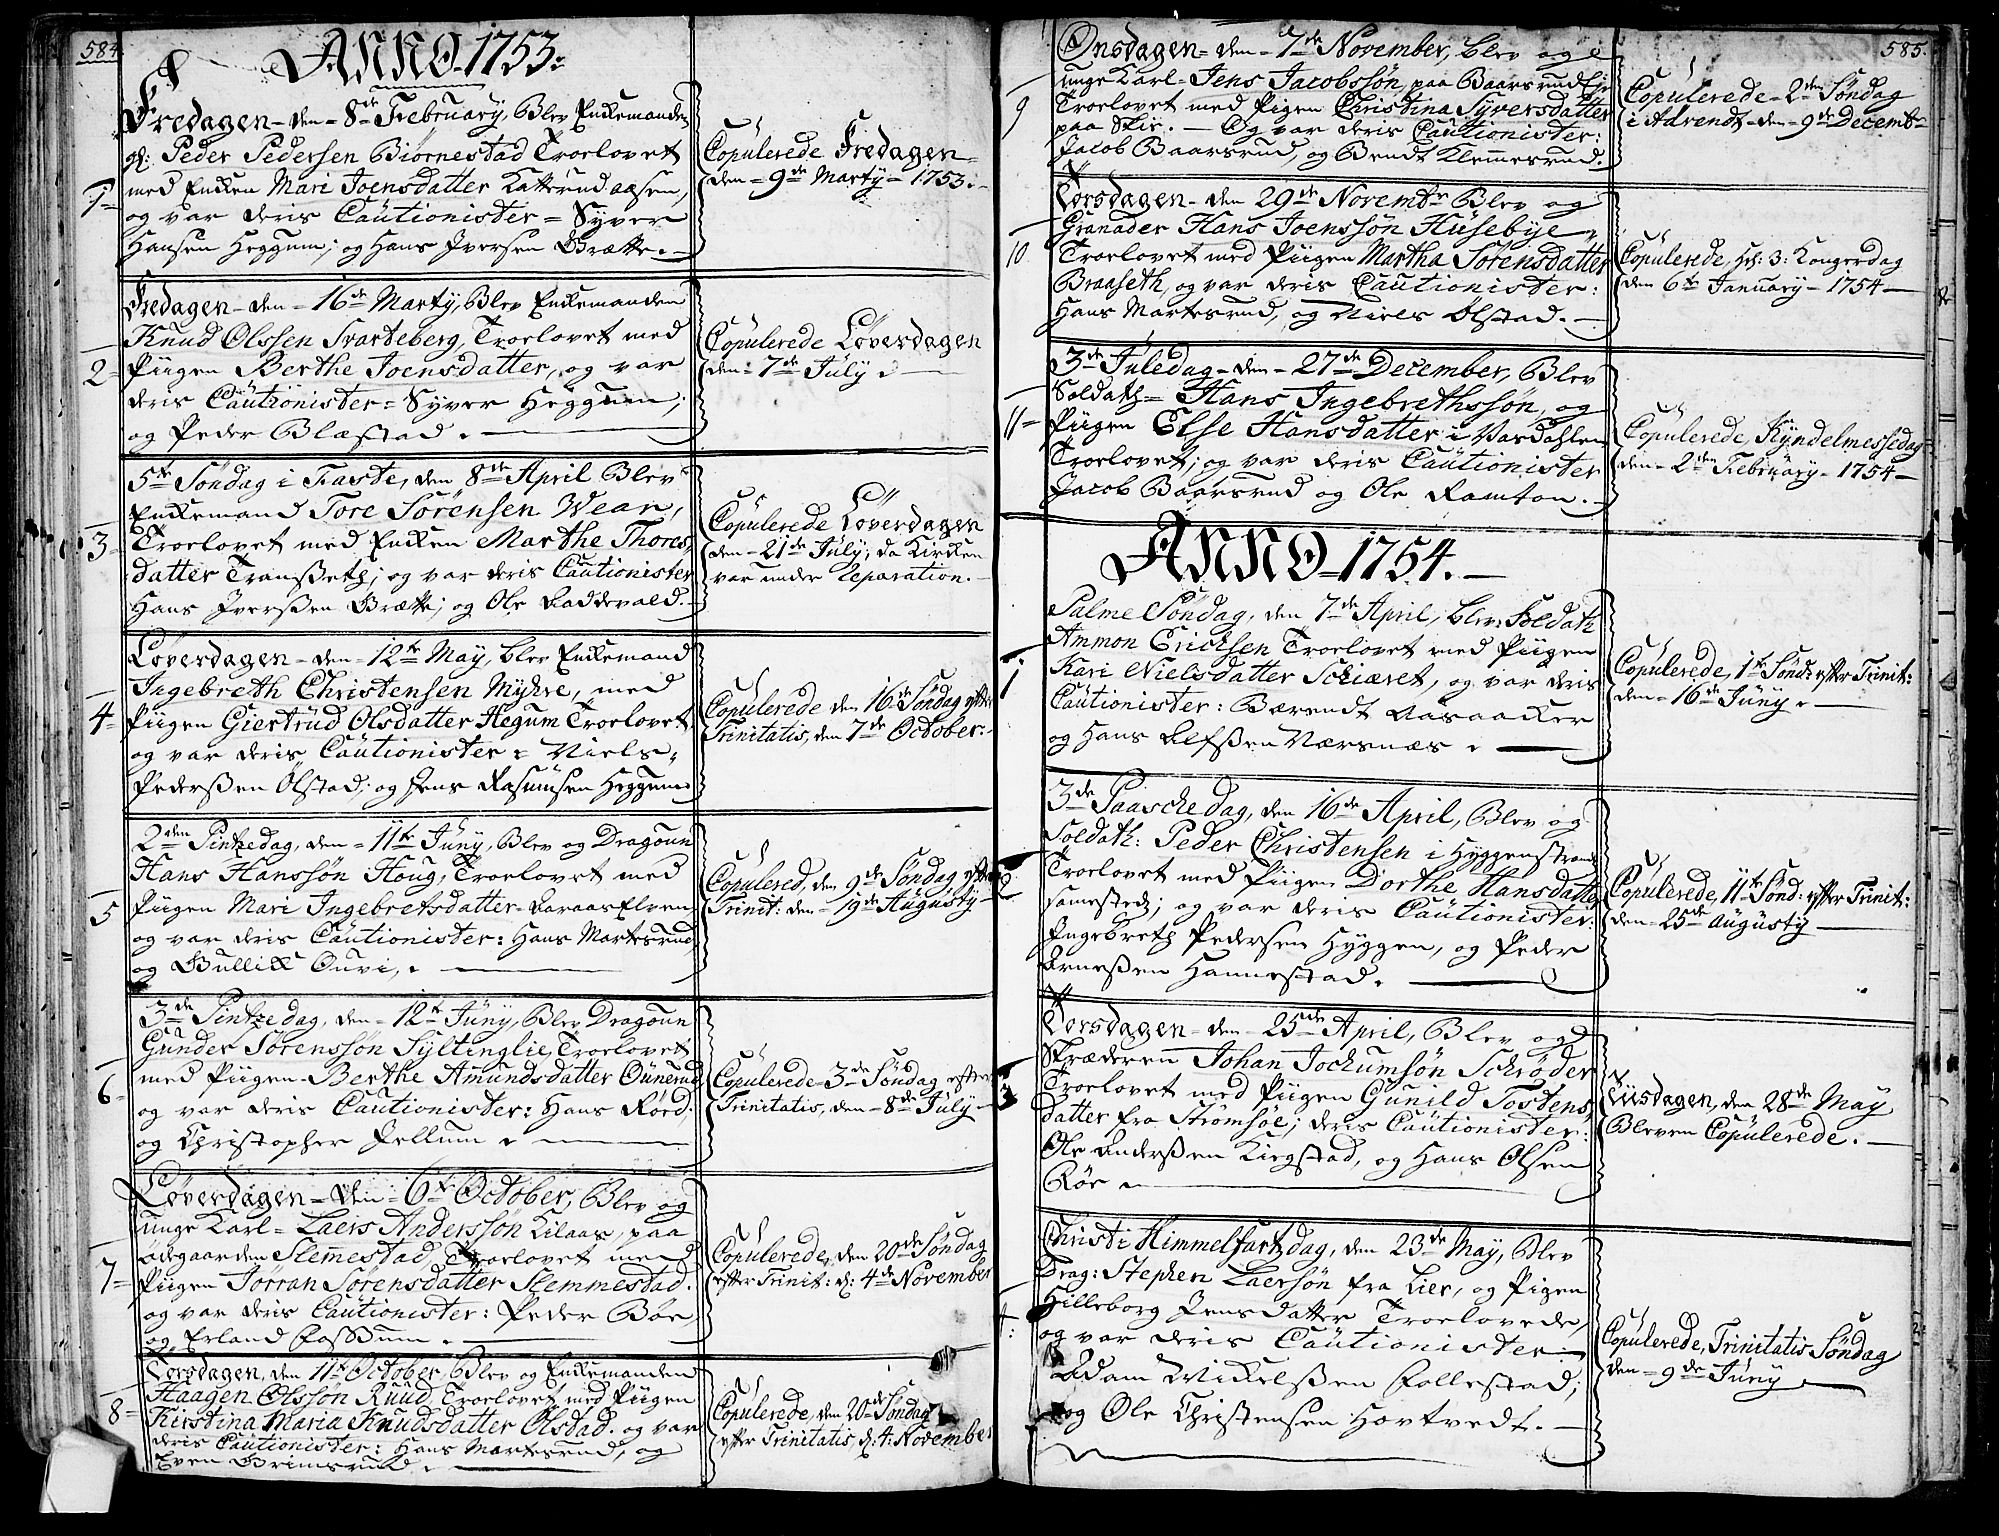 584.
ANNO 1753:
Fredagen - den - 8de February, Blev Enckemanden
Peder Pedersen Biørnestad Troelovet
1 = med Encken Mari Joensdatter Katterud aasen,
og var deris Cautionister = Syver
Hansen Heggum; og Hans Iversen Grætte. -
Copulerede Fredagen
den = 9de Martij - 1753. -
Fredagen - den - 16de Martij, Blev Enckemanden
Knud Olssen Svarteberg, Troelovet med
2 = Piigen Berthe Joensdatter, og var
deris Cautionister = Syver Heggum;
og Peder Blæstad. -
Copulerede Løverdagen
den = 7de July. -
5te Søndag i Faste, den 8de April Blev
Enckemand Tore Sørensen Wear,
3 = Troelovet med Encken Marthe Thores
datter Tranßeth; og var deris Cautionister
Hans Iverßen Grætte; og Ole Raddevald. -
Copulerede Løverdagen
den - 21de July, da Kircken
var under Reparation. -
Løverdagen - den - 12te May, blev Enckemand
Ingebreth Christensen Myhre, med
4 = Piigen Giertrud Olsdatter Hegum Troelovet
og var deris Cautionister = Niels
Pederßen Ølstad; og Jens Rasmusen Heggum
Copulerede den 16de Søndag efter
Trinitatis, den 7de October: -
2den Pintzedag, den - 11te Juny, Blev og Dragoun
Hans Hanssøn Houg, Troelovet med
5 Piigen Mari Ingebretsdatter - Aaraas Elven,
og var deris Cautionister: Hans Martesrud,
og Gullik Ouvi, . -
Copulered, den 9de Søndag efter
Trinit: den - 19de Augusty -
3de Pintzedag, den - 12te Juny, Blev Dragoun
Gunder Sørenssøn Syltinglie, Troelovet
6 = med Piigen - Berthe Amundsdatter Ounerud
og var deris Cautionister: Hans Rørd,
og Christopher Fellum. -
Copulerede - 3de Søndag efter
Trinitatis, den - 8de July -
Løverdagen - den - 6te October, Blev og
unge Karl = Laers Anderssøn Kilaas, paa
Ødegaarden Slemestad, Troelovet med
7 = Piigen Jørran Sørensdatter Slemmestad.
og var deris Cautionister: Peder Bøe,
og Erland Foßum. -
Copulerede, den 20de Søndag
efter Trinit: d: 4de November
Torsdagen, den 11te October, Blev og Enckemanden
Haagen Olssøn Ruud, Troelovet med Piigen
8 = Kirstina Maria Knudsdatter Ølstad. og var
deris Cautionister: Hans Martesrud, og
Even Grimsrud. -
Copulerede, den 20de Søndag
efter Trinitatis, d: 4. November
585.
Onsdagen - den - 7de November, blev og
unge Karl - Jens Jacobssøn paa Baarsrud Eje
9 Troelovet med Piigen Christina Syversdatter
paa Skir. - Og var deris Cautionister:
Jacob Baarsrud, og Bendt Klemmesrud.
Copulerede - 2den Søndag
i Advendt - den - 9de Decembr
Torsdagen - den 29de Novembr Blev og
Granader Hans Joenssøn Husebye,
10. Troelovet med Piigen Martha Sørensdatter
Braaseth, og var deris Cautionister:
Hans Martesrud, og Niels Ølstad. -
Copulerede, Hel: 3: Kongerdag
den 6te January - 1754 -
3de Juledag - den - 27de December, Blev
Soldath - Hans Ingebrethssøn, og
11 = Piigen Else Hansdatter i Vardahlen
Troelovet; og var deris Cautionister
Jacob Baarsrud og Ole Ramton. -
Copulerede, Kyndelmessedag
den - 2den February - 1754 -
ANNO - 1754. -
Palme Søndag, den 7de April, blev: Soldath
Ammon Ericksen Troelovet med Piigen
1 Kari Nielsdatter Schiæret, og var deris
Cautionister: Bærendt Aasaacker
og Hans Alfßen Nærsnæs. -
Copulerede, 1te Sønd: efter Trinit:
den - 16de Juny. -
3de Paasche dag, den 16de April, Blev og
Soldath: Peder Christensen i Hyggenstrand
2 Troelovet med Piigen Dorthe Hansdatter
samested; og var deris Cautionister:
Ingebreth Pedersen Hyggen, og Peder
Arneßen Hannestad. -
Copulerede, 11te Sønd: efter Trinit:
den - 25de Augusty -
Torsdagen - den - 25de April, Blev og
Skræderen Johan Jochumsøn Schrøder
3 Troelovet med Piigen Gunild Tostens
datter fra Strømsøe; deris Cautionister:
Ole Anderßen Kiegstad, og Hans Olsen
Røe. -
Tiisdagen, den 28de May
Bleven Copulerede. -
Christi Himmelfartz dag, den 23de May, Blev
Drag: Stephen Laersøn fra Lier, og Pigen
4: Hilleborg Jensdatter Troelovede,
og var deris Cautionister
Adam Mickelßen Follestad;
og Ole Christensen Hovtvedt. -
Copulerede, Trinitatis Søndag
den - 9de Juny -